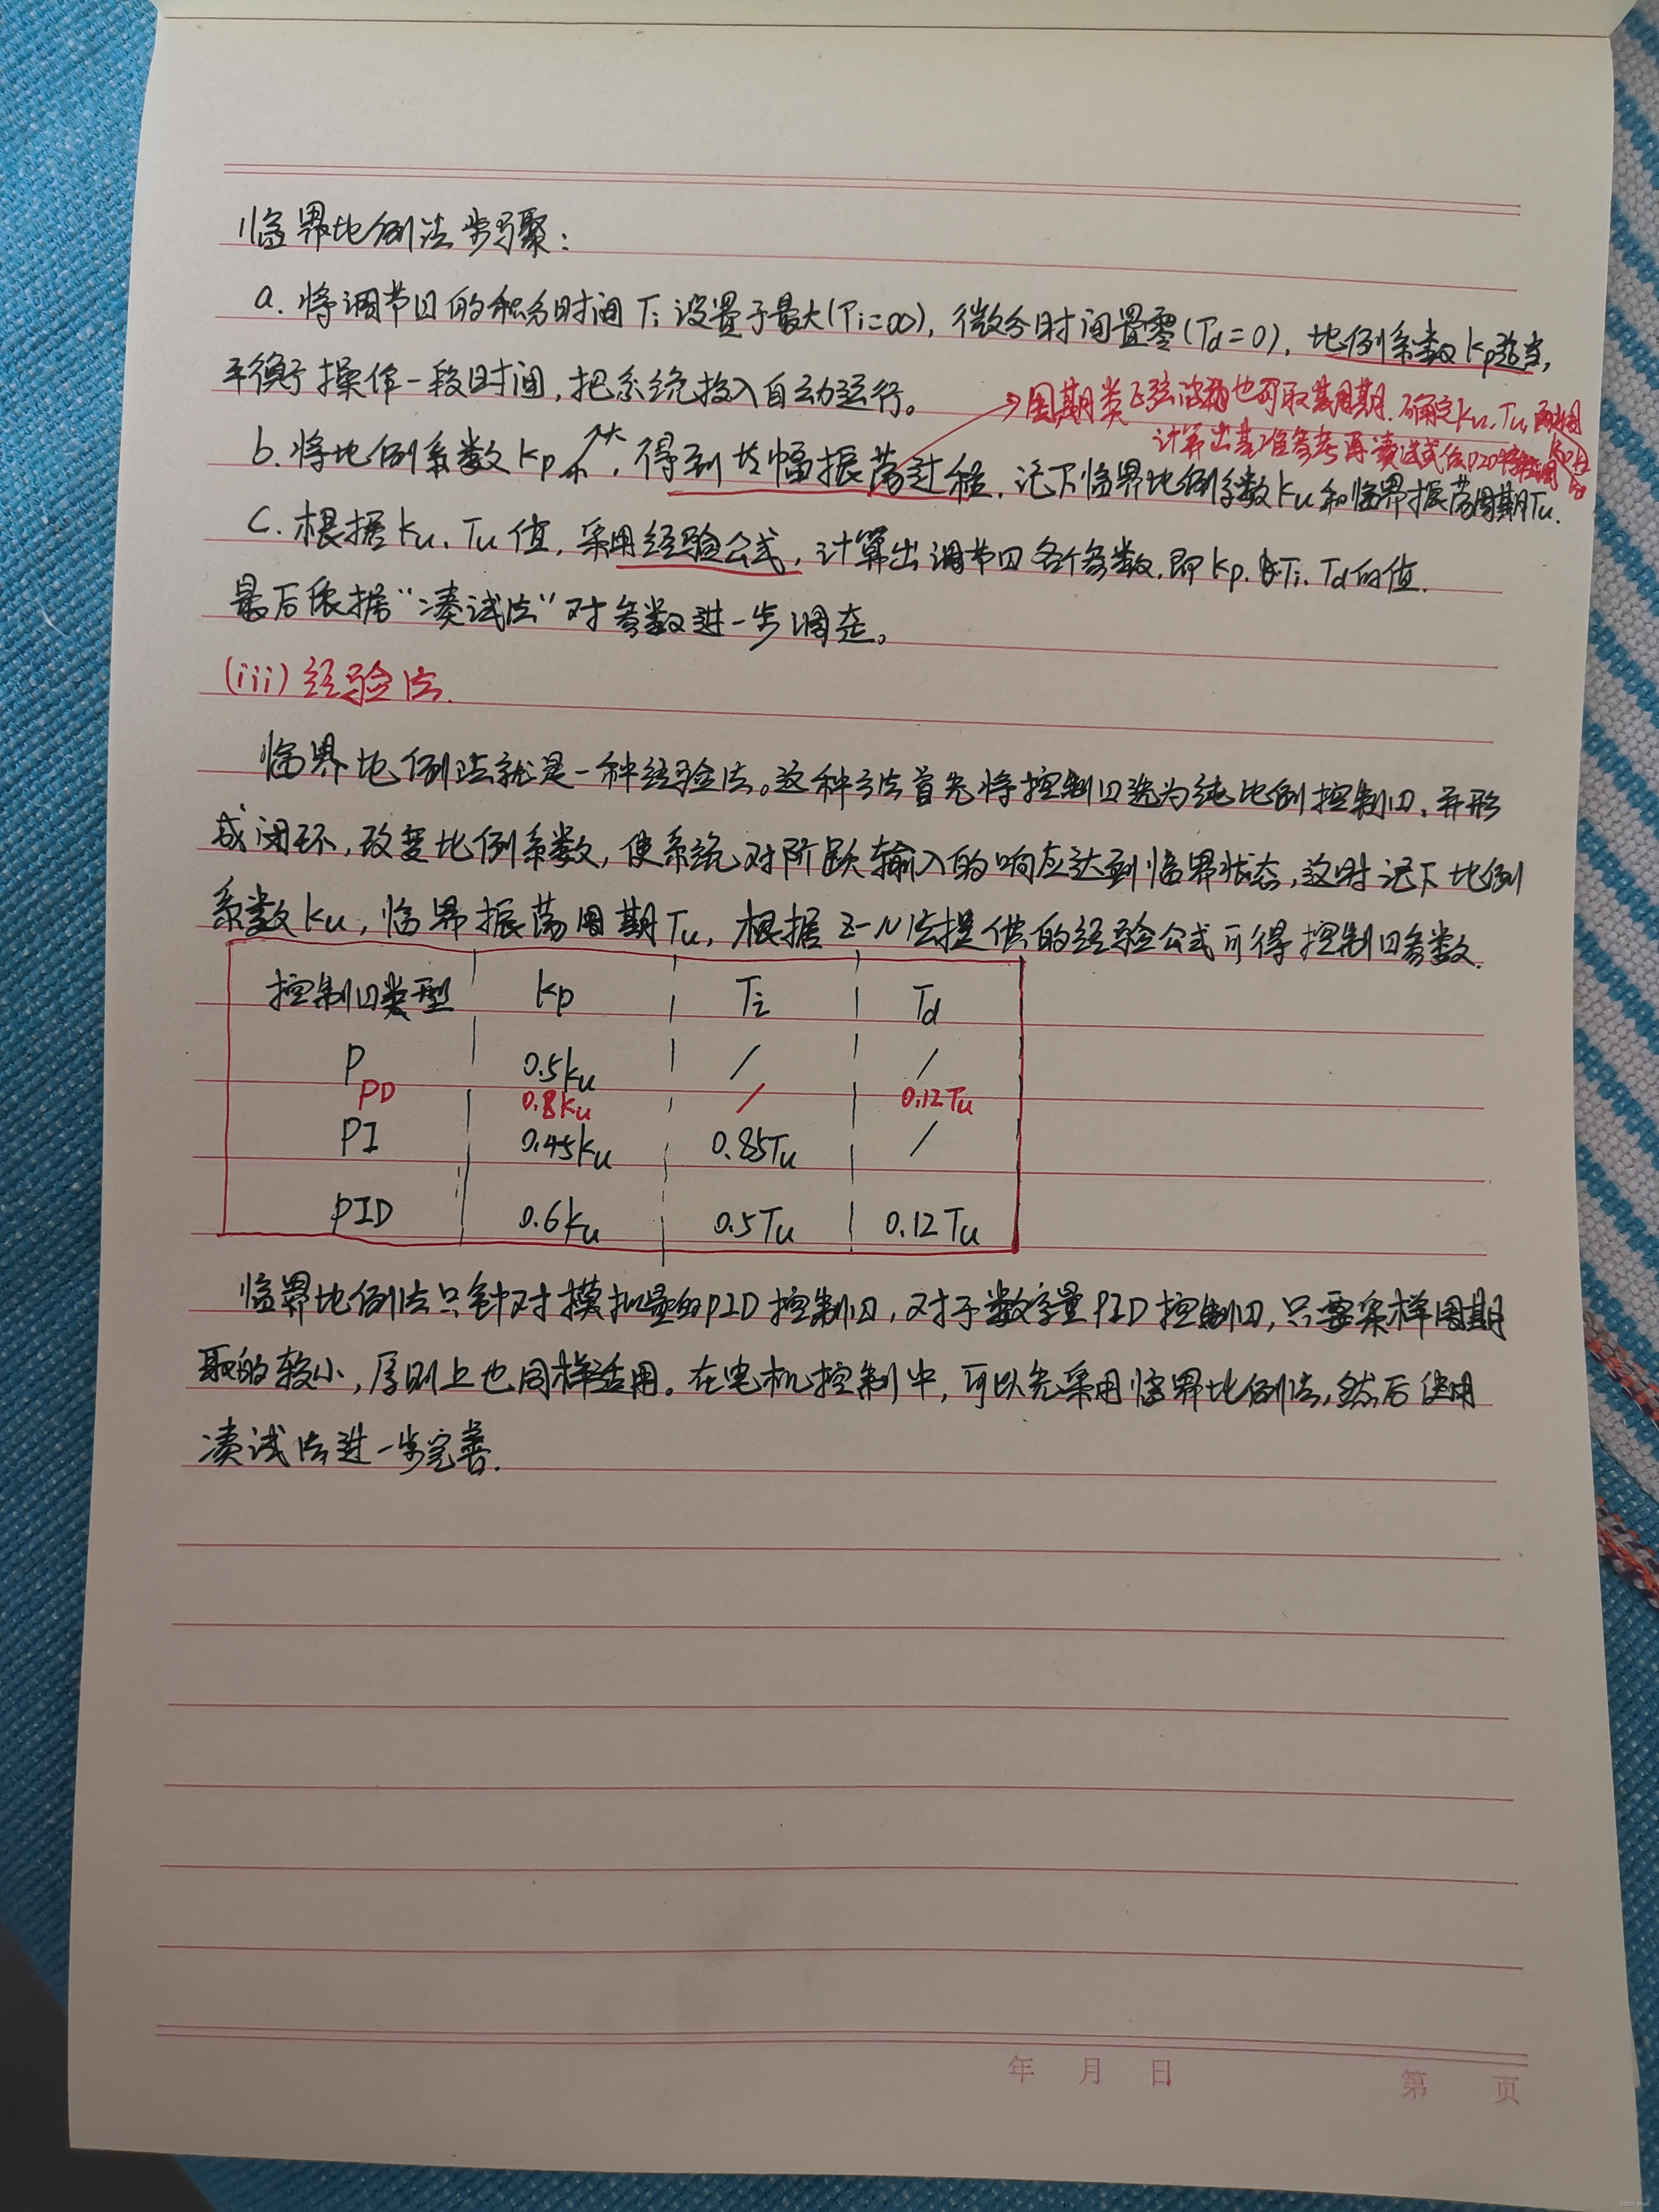 临界比例法步骤：
a. 将调节口的积分时间 Ti 设置于最大(Ti=∞), 微分时间置零(Td=0), 比例系数Kp适当,
平衡操作一段时间, 把系统投入自动运行。
周期类正弦波物也可取其周期, 确定Ku、Tu,
计算出基准参考再凑试
b. 将比例系数Kp↗大, 得到等幅振荡过程, 记下临界比例系数Ku和临界振荡周期Tu.
C. 根据Ku、Tu值, 采用经验公式, 计算出调节口各个参数, 即Kp、Ti、Td的值.
最后依据“凑试法”对参数进一步调走。
(iii) 经验法.
临界比例法就是一种经验法。这种方法首先将控制口选为纯比例控制口, 并形
成闭环, 改变比例系数, 使系统对阶跃输入的响应达到临界状态, 这时记下比例
系数Ku, 临界振荡周期Tu, 根据Z-N法提供的经验公式可得控制口参数.
控制口类型 Kp Ti Td
P 0.5Ku / /
PD 0.8Ku / 0.12Tu
PI 0.45Ku 0.85Tu /
PID 0.6Ku 0.5Tu 0.12Tu
临界比例法只针对模拟量的PID控制口, 对于数字量PID控制口, 只要采样周期
取的较小, 原则上也同样适用。在电机控制中, 可以先采用临界比例法, 然后使用
凑试法进一步完善.
年 月 日
第 页